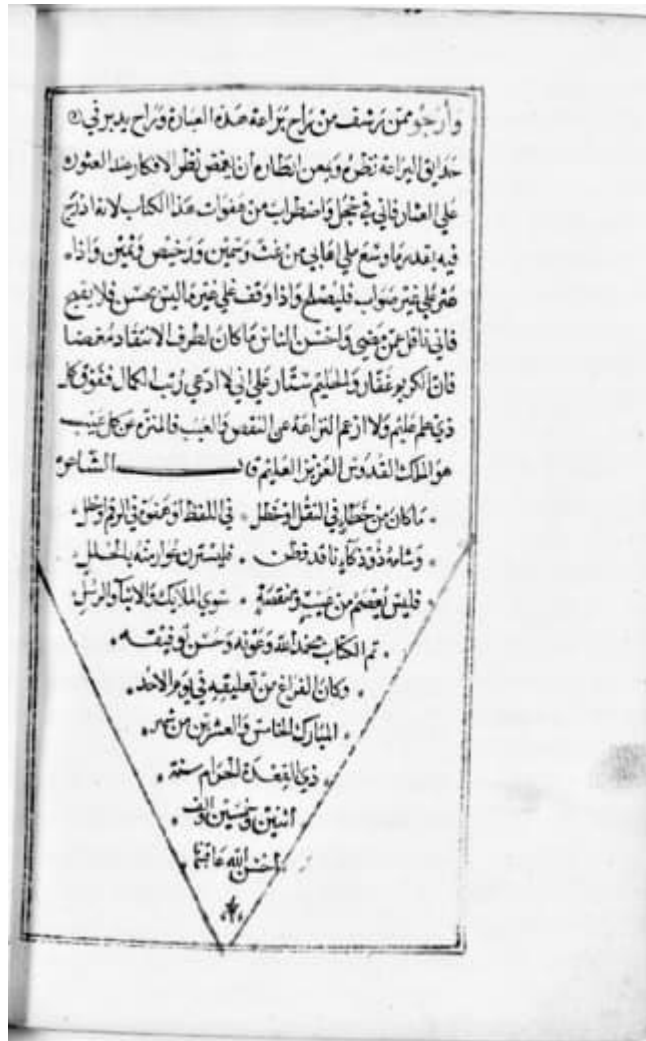 وأرجو ممن رشف من راح براعة هذه العبارة وراح يدير في
حدائق البراعة نظره ويمعن انظاره أن يغمض نظر الافكار عند العثور
علي العثار فاني في خجل واضطراب من هفوات هذا الكتاب لانه اندرج
فيه بقدر ما وسع ملي اهابي من غث وسمين ورخيص وثمين واذا
عثر علي غير صواب فليصلح واذا وقف علي غير ما ليس بحسن فلا يقبح
فاني ناقل عمن مضي واحسن الناس ما كان لطرف الانتقاد مغرضا
فان الكريم غفار والحليم ستار علي اني لا ادعي رتب الكمال ففوق كل
ذي علم عليم ولا ازعم النزاهة عن النقص والعيب فالمنزه عن كل عيب
هو الملك القدوس العزيز العليم قال الشاعر
ما كان من خطاء في النقل او خطل في اللفظ او هفوة في الرقم او خلل
وشامه ذو ذكاء ناقد فطن فليسترن عواره منه بالحلل
فليس يعصم من عيب ومنقصة سوي الملايك والانبياء والرسل
تم الكتاب بحمد الله وعونه وحسن توفيقه
وكان الفراغ من تعليقه في يوم الاحد
المبارك الخامس والعشرين من شهر
ذي القعدة الحرام سنة
أثنين وخمسين والف
أحسن الله عاقبتها